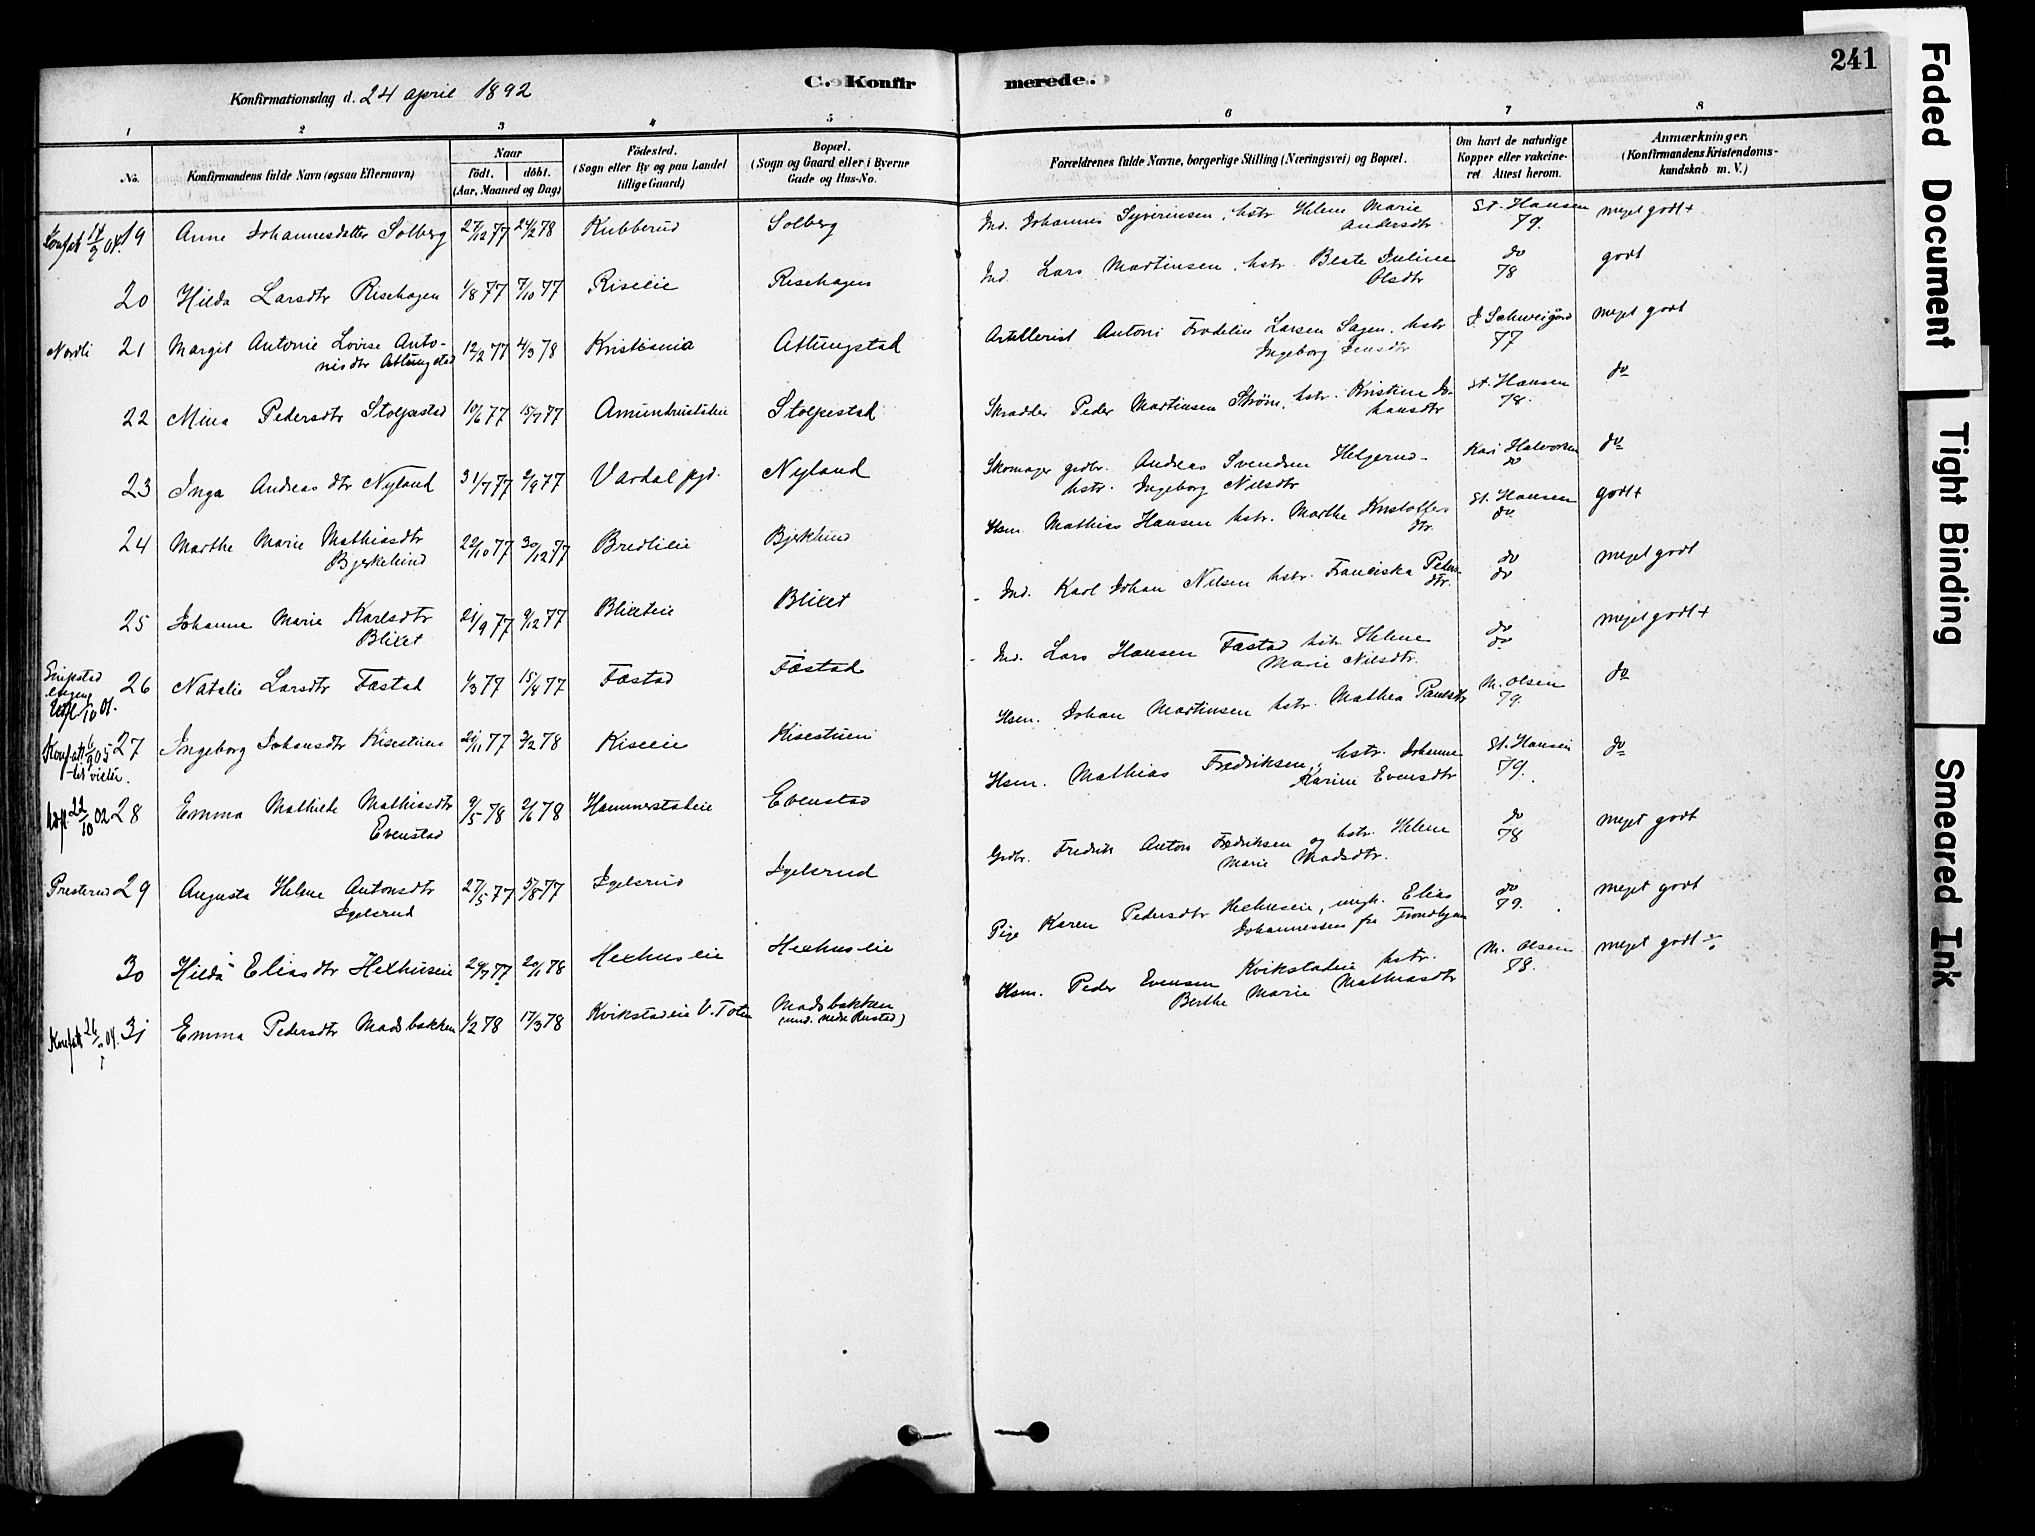 241
Konfirmationsdag d. 24 april 1892
C. Konfir merede.
1 2 3 4 5 6 7 8
No.
Konfirmandens fulde Navn (ogsaa Efternavn)
Naar
født. døbt.
(Aar, Maaned og Dag)
Fødested.
(Sogn eller By og paa Landet
tillige Gaard)
Bopæl.
(Sogn og Gaard eller i Byerne
Gade og Hus-No.
Forældrenes fulde Navne, borgerlige Stilling (Næringsvei) og Bopæl.
Om havt de naturlige
Kopper eller vakcine-
ret Attest herom.
Anmærkninger.
(Konfirmandens Kristendoms-
kundskab m. V.)
19 Anne Johannesdatter Solberg 27/12 77 24/2 78 Kubberud Solberg Ind. Johannes Syverinsen, hstr. Helene Marie
Andersdtr St. Hansen
79. meget godt +
20 Hilda Larsdtr Risehagen 1/8 77 7/10 77 Riseeie Risehagen Ind Lars Martinsen, hstr. Beate Juline
Olsdtr do
78 godt
Nordli 21 Margit Antonie Lovise Anto-
nisdtr Attungstad 12/2 77 4/3 78 Kristiania Attungstad Artillerist Antoni Fredelin Larsen Sagen. hstr
Ingeborg Jensdtr J. Schweigård
77 meget godt
22 Mina Pedersdtr Stolpestad 10/6 77 15/7 77 Amundrudseie Stolpestad Skrædder Peder Martinsen Strøm, hstr. Kristine Jo-
hansdtr St. Hansen
78. do
23 Inga Andreasdtr Nyland 31/7 77 2/9 77 Vardal pgd. Nyland Skomager grdbr. Andreas Svendsen Helgerud-
hstr. Ingeborg Nilsdtr Kari Halvorsen
do do
24 Marthe Marie Mathiasdtr
Bjerkelund 22/10 77 30/12 77 Bredlieie Bjerklund Hsm. Mathias Hansen hstr. Marthe Kristoffers
dtr. St. Hansen
do godt +
25 Johanne Marie Karlsdtr
Blilet 21/9 77 9/12 77 Blileteie Blilet Ind. Karl Johan Nilsen hstr. Franciska Peders
dtr. do
do meget godt
26 Natalie Larsdtr Fæstad 4/3 77 15/4 77 Fæstad Fæstad Ind. Lars Hansen Fæstad hstr. Helene
Marie Nilsdtr. do
do meget godt +
27 Ingeborg Johansdtr Kisestuen 21/11 77 3/2 78 Kiseeie Kisestuen Hsm. Johan Martinsen hstr. Mathea Paulsdtr M. Olsen
79. do
28 Emma Mathilde Mathiasdtr
Evenstad 9/5 78 2/6 78 Hammerstadeie Evenstad Hsm. Mathias Fredriksen, hstr. Johanne
Karine Evensdtr St. Hansen
79. do
Presterud 29 Augusta Helene Antonsdtr
Igelsrud 27/5 77 5/8 77 Igelsrud Igelsrud Grdbr. Fredrik Anton Fredriksen og hstr. Helene
Marie Madsdtr. do
78 meget godt
30 Hilda Eliasdtr Hexhuseie 24/7 77 20/1 78 Hexhuseie Hexhuseie Pige Karen Pedersdtr Hexhuseie, ungk. Elias
Johannessen fra Trondhjem do
79. meget godt
31 Emma Pedersdtr Madsbakken 1/2 78 17/3 78 Kvikstadeie V. Toten Madsbakken
(und. Nedre Rustad) Hsm. Peder Evensen Kvikstadeie hstr.
Berthe Marie Mathiasdtr M. Olsen
78. meget godt
Faded Document
Tight Binding
Smeared Ink